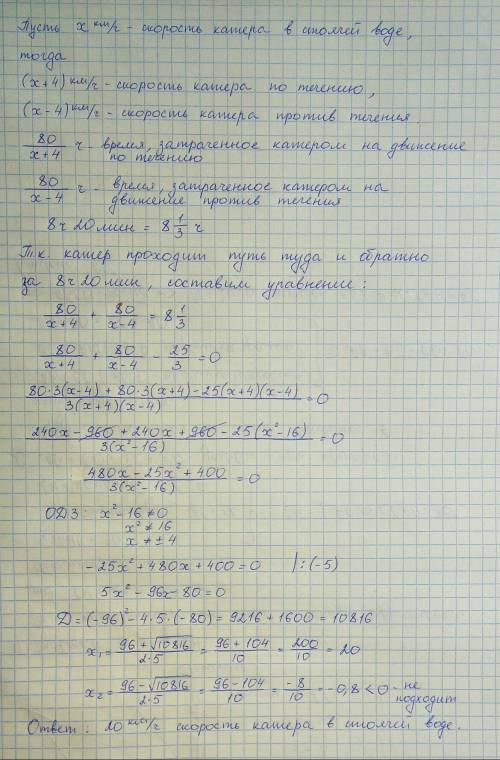 Пусть x км/ч - скорость катера в стоячей воде,
тогда
(x+4) км/ч - скорость катера по течению,
(x-4) км/ч - скорость катера против течения.
80/(x+4) ч - время, затраченное катером на движение
по течению
80/(x-4) ч - время, затраченное катером на
движение против течения
8ч 20 мин = 8 1/3 ч
Т.к. катер проходит путь туда и обратно
за 8ч 20 мин, составим уравнение:
80/(x+4) + 80/(x-4) = 8 1/3
80/(x+4) + 80/(x-4) - 25/3 = 0
(80·3(x-4) + 80·3(x+4) - 25(x+4)(x-4))/(3(x+4)(x-4)) = 0
(240x - 960 + 240x + 960 - 25(x²-16))/(3(x²-16)) = 0
(480x - 25x² + 400)/(3(x²-16)) = 0
ОДЗ: x²-16 ≠ 0
x² ≠ 16
x ≠ ± 4
-25x² + 480x + 400 = 0 |:(-5)
5x² - 96x - 80 = 0
D = (-96)² - 4·5·(-80) = 9216 + 1600 = 10816
x₁ = (96 + √10816)/(2·5) = (96 + 104)/10 = 200/10 = 20
x₂ = (96 - √10816)/(2·5) = (96 - 104)/10 = -8/10 = -0,8 < 0 - не
подходит
Ответ: 20 км/ч скорость катера в стоячей воде.